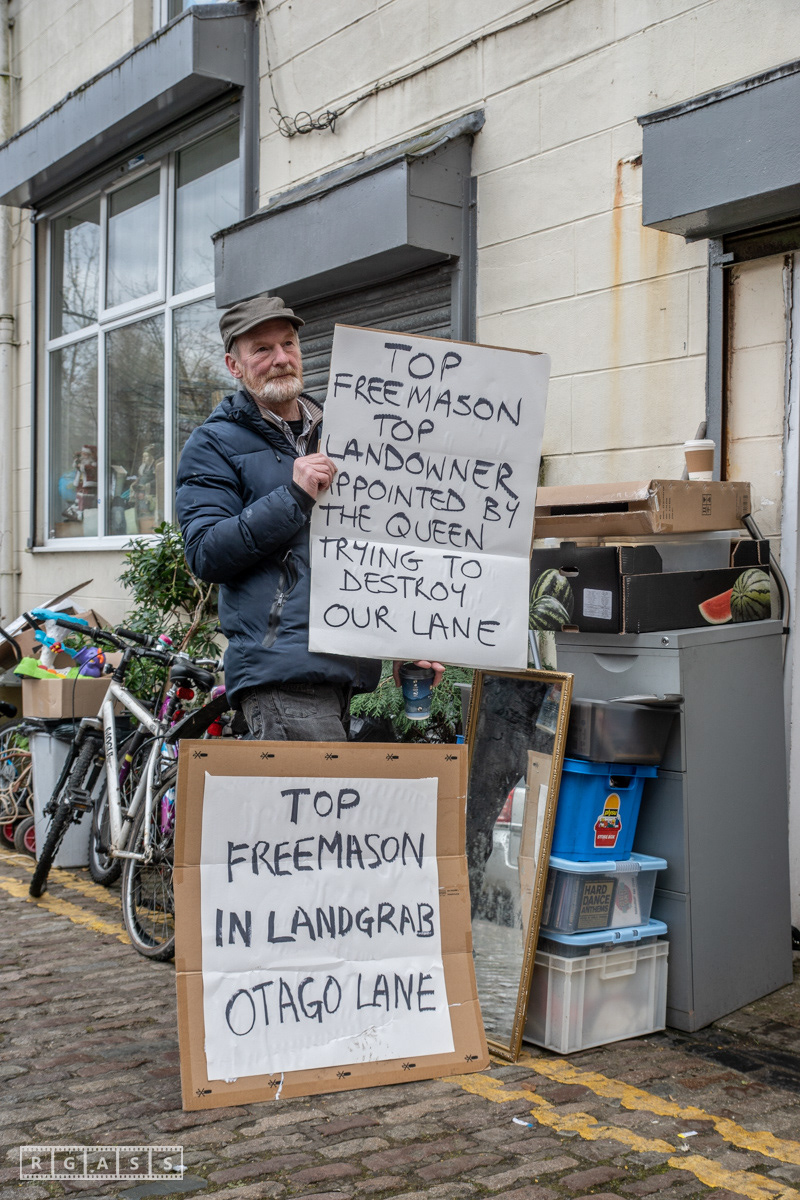 TOP
FREEMASON
TOP
LANDOWNER
APPOINTED BY
THE QUEEN
TRYING TO
DESTROY
OUR LANE
TOP
FREEMASON
IN LANDGRAB
OTAGO LANE
HARD
DANCE
ANTHEMS
RGASS